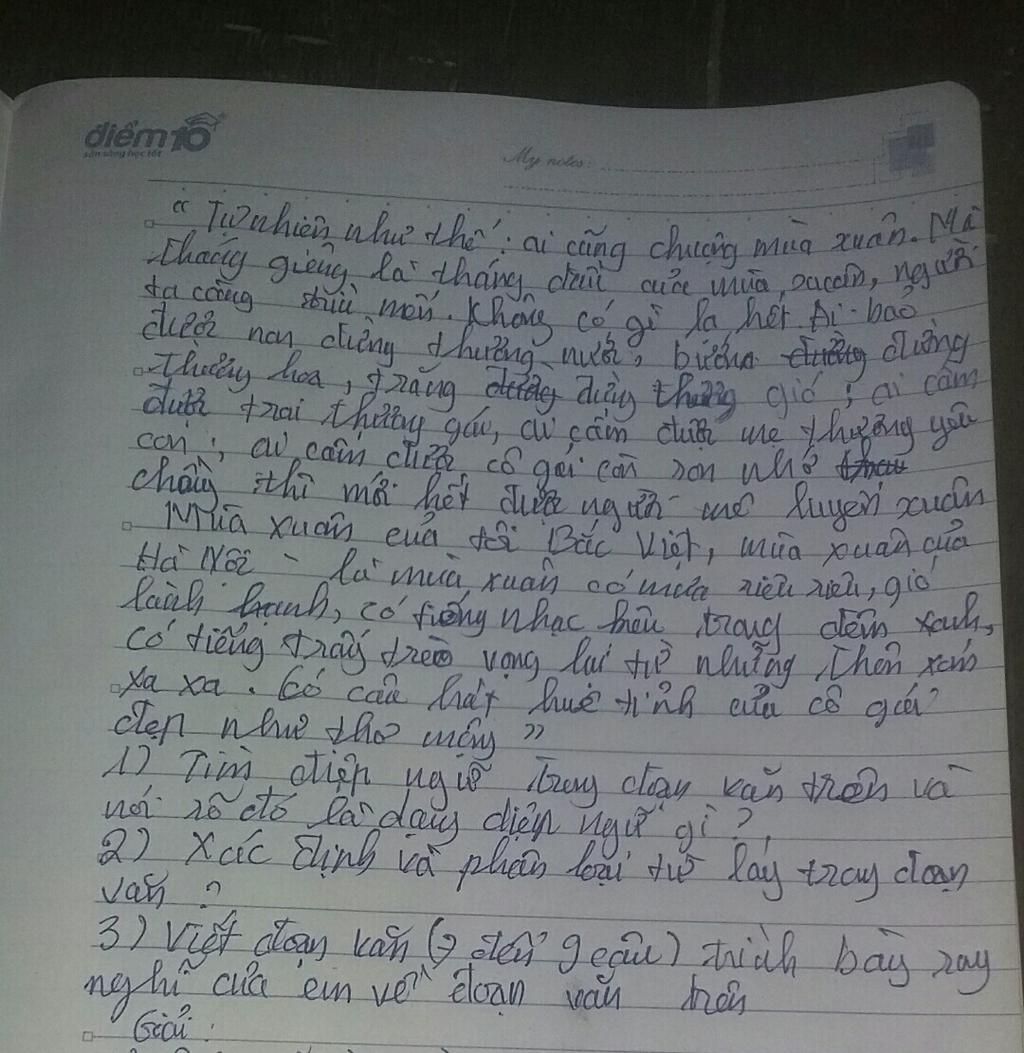 điểm 10
sẵn sàng học tốt
My notes:
" Tự nhiên như thế : ai cũng chuộng mùa xuân. Mà
tháng giêng là tháng đầu của mùa xuân, người
ta càng trìu mến. Không có gì lạ hết. Ai bảo
được non đừng thương nước, bướm đừng
thương hoa, trăng đừng thương gió ; ai cấm
được trai thương gái, ai cấm được mẹ thương yêu
con ; ai cấm được cô gái còn son nhớ
chồng thì mới hết được người mê luyến xuân
Mùa xuân của tôi Bắc Việt, mùa xuân của
Hà Nội - là mùa xuân có mưa riêu riêu, gió
lành lạnh, có tiếng nhạn kêu trong đêm xanh,
có tiếng trống chèo vọng lại từ những thôn xóm
xa xa. Có câu hát huê tình của cô gái
đẹp như thơ mộng "
1) Tìm điệp ngữ trong đoạn văn trên và
nói rõ đó là dạng điệp ngữ gì ?
2) Xác định và phân loại từ láy trong đoạn
văn ?
3) Viết đoạn văn (7 đến 9 câu) trình bày suy
nghĩ của em về đoạn văn trên
Giải :